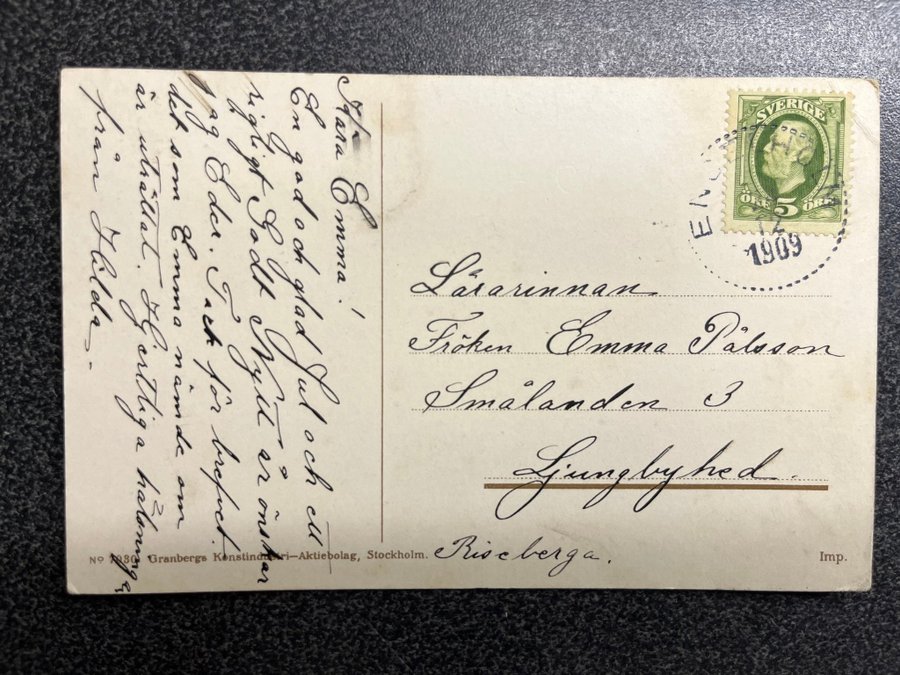 Kära Emma!
En god och glad Jul och ett
rigtigt Godt Nytt år önskar
jag Eder. Tack för brefvet
det som Emma nämde om
är uträttat. Hjertliga hälsningar
från Hilda.
SVERIGE
ÖRE 5 ÖRE
ENG
12
1909
Lärarinnan
Fröken Emma Pålsson
Smålanden 3
Ljungbyhed.
Riseberga.
Granbergs Konstindustri-Aktiebolag, Stockholm.
Imp.